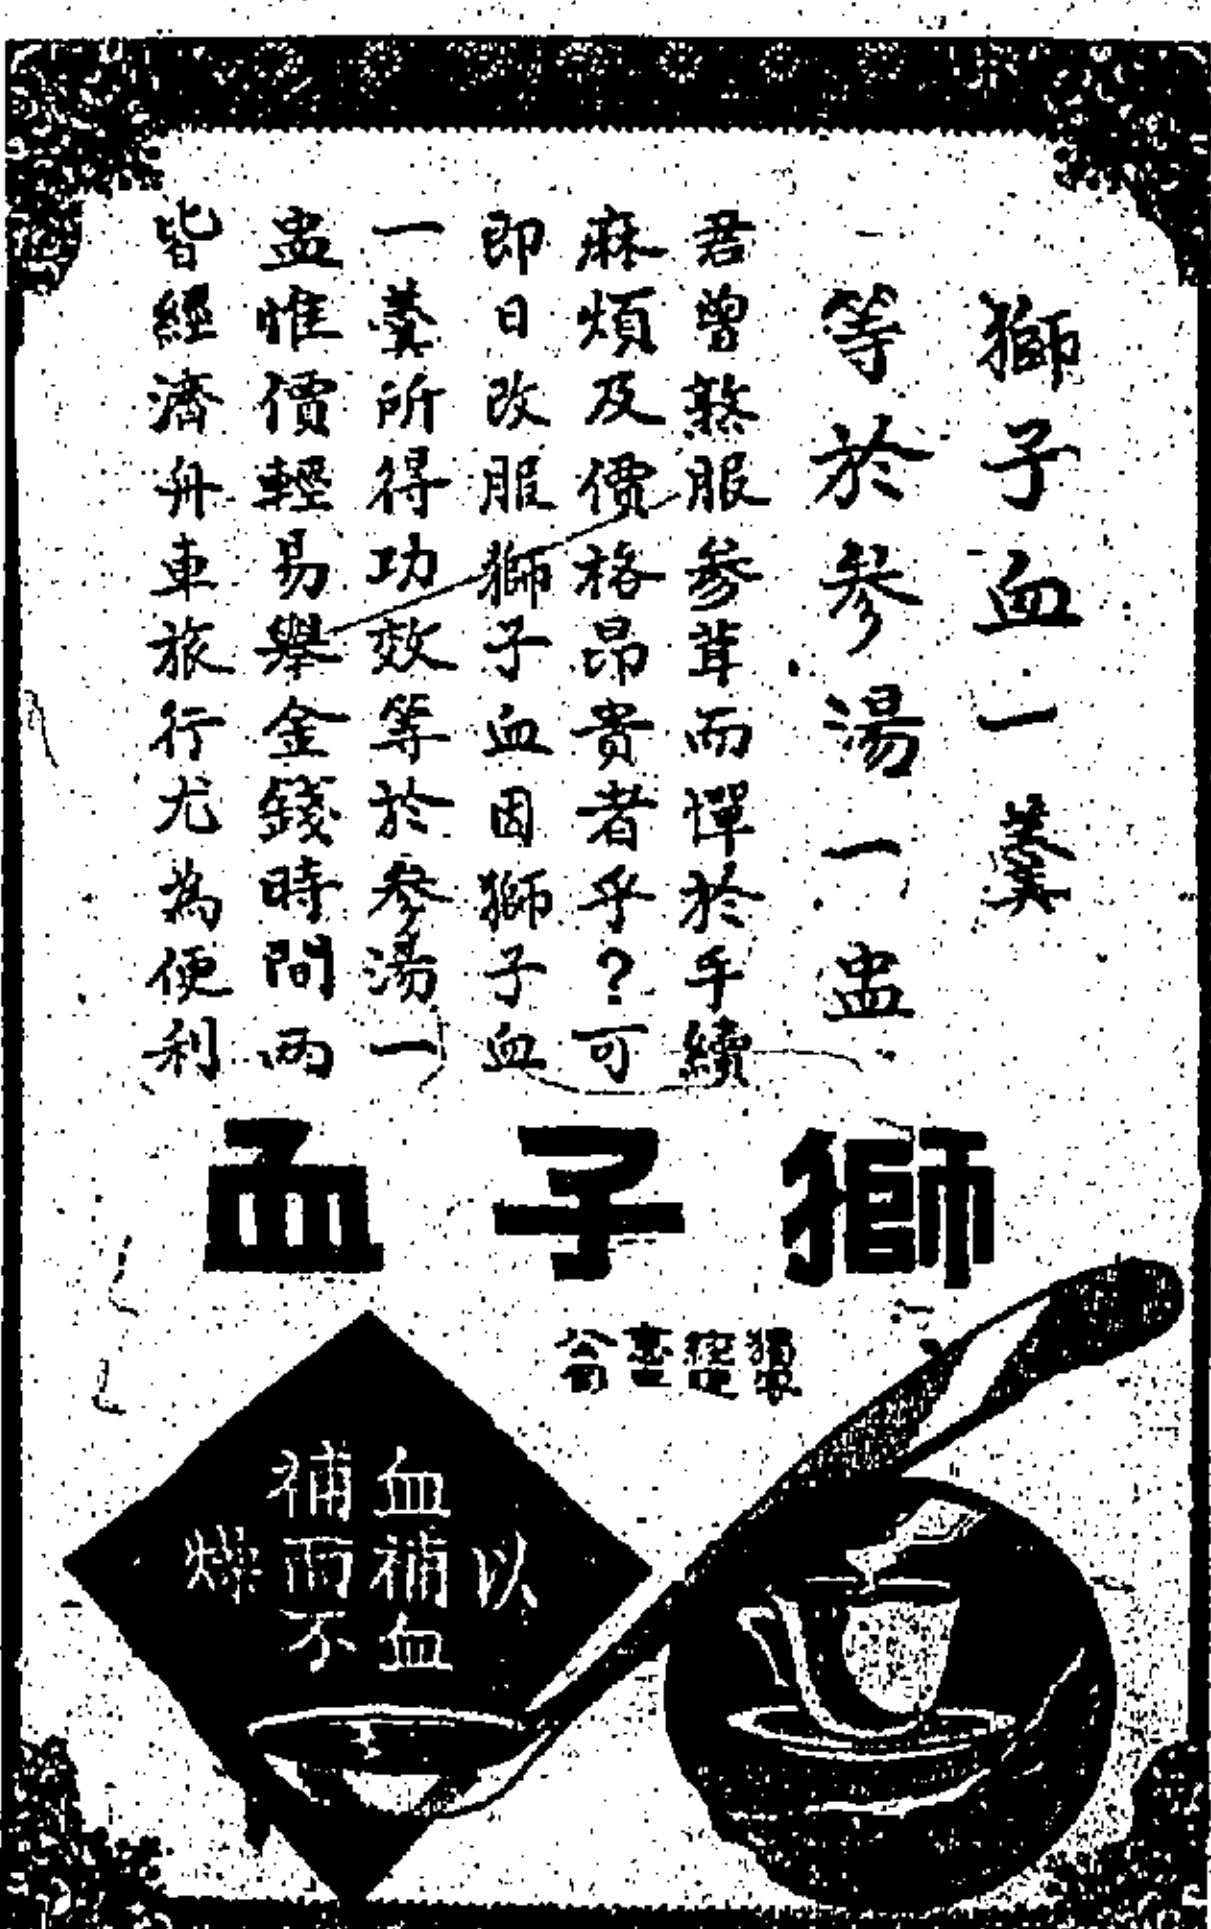 獅子血一羹
等於參湯一盅
君曾煞服參茸而憚於手續
麻煩及價格昂貴者乎？可
即日改服獅子血因獅子血
一羹所得功效等於參湯一
盅惟價輕易舉金錢時間兩
皆經濟舟車旅行尤為便利
獅子血
獨家
公司
以
血補血
補而不
燥